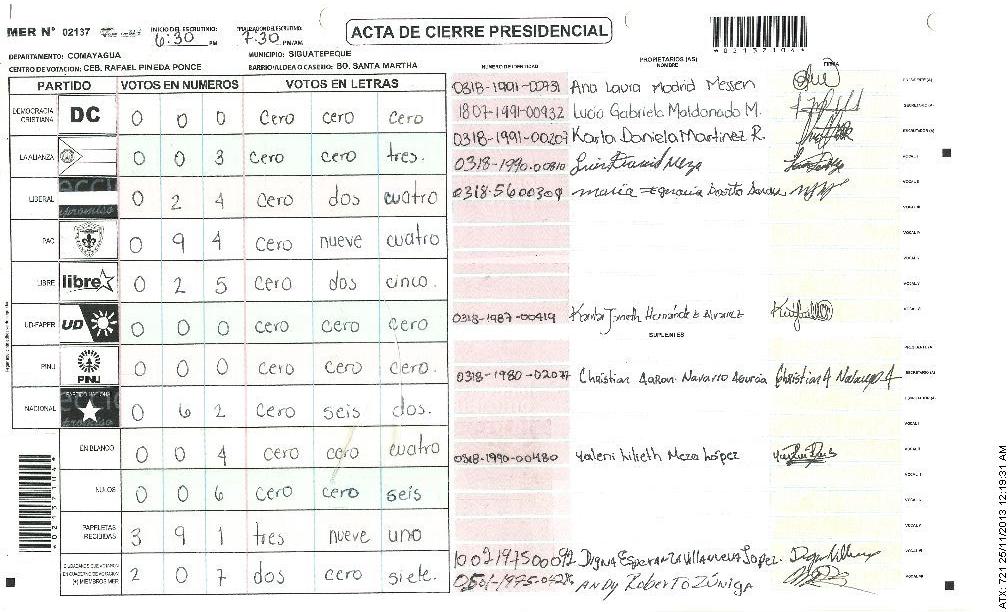 MER N° 02137
INICIO DEL ESCRUTINIO:
6:30 PM
FINALIZACION DEL ESCRUTINIO:
7:30 PM/AM
ACTA DE CIERRE PRESIDENCIAL
DEPARTAMENTO: COMAYAGUA
MUNICIPIO: SIGUATEPEQUE
CENTRO DE VOTACION: CEB. RAFAEL PINEDA PONCE
BARRIO/ALDEA O CASERIO: BO. SANTA MARTHA
PARTIDO VOTOS EN NUMEROS VOTOS EN LETRAS
DEMOCRACIA CRISTIANA DC 0 0 0 cero cero cero
LA ALIANZA 0 0 3 cero cero tres.
LIBERAL 0 2 4 cero dos cuatro
PAC 0 9 4 cero nueve cuatro
LIBRE libre 0 2 5 cero dos cinco.
UD-FAPER UD 0 0 0 cero cero cero
PINU PINU 0 0 0 cero cero cero.
NACIONAL 0 6 2 cero seis dos.
EN BLANCO 0 0 4 cero cero cuatro
NULOS 0 0 6 cero cero seis
PAPELETAS RECIBIDAS 3 9 1 tres nueve uno
2 0 7 dos cero siete.
NUMERO DE IDENTIDAD
PROPIETARIOS (AS)
NOMBRE
FIRMA
0318-1991-00731 Ana Laura Madrid Messen
1807-1991-00932 Lucio Gabriela Maldonado M.
0318-1991-00207 Karla Daniela Martinez R.
0318-1990-00810 Luis David Meza
0318-5600309 maria
0318-1987-00419 Janeth Hernández Alvarez
SUPLENTES
0318-1980-02077 Christian Aaron Navarro
0318-1990-00480 Yaleni Lilieth Meza López
1002197500092 Digna Esperanza Villanueva Lopez.
Andy Roberto Zúniga
02137104
ATX: 7212 25/11/2013 12:19:31 AM